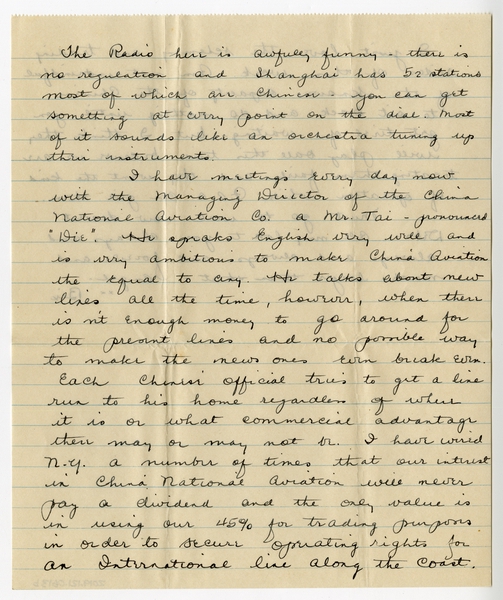 The Radio here is awfully funny - there is
no regulation and Shanghai has 52 stations
most of which are Chinese - you can get
something at every point on the dial. Most
of it sounds like an orchestra tuning up
their instruments.
I have meetings every day now
with the Managing Director of the China
National Aviation Co. a Mr. Tai - pronounced
"Die". He speaks English very well and
is very ambitious to make China Aviation
the equal to any. He talks about new
lines all the time, however, when there
isn't enough money to go around for
the present lines and no possible way
to make the news ones even break even.
Each Chinese official tries to get a line
run to his home regardless of where
it is or what commercial advantage
there may or may not be. I have wired
N.Y. a number of times that our interest
in China National Aviation will never
pay a dividend and the only value is
in using our 45% for trading purposes
in order to secure operating rights for
an International line along the coast.